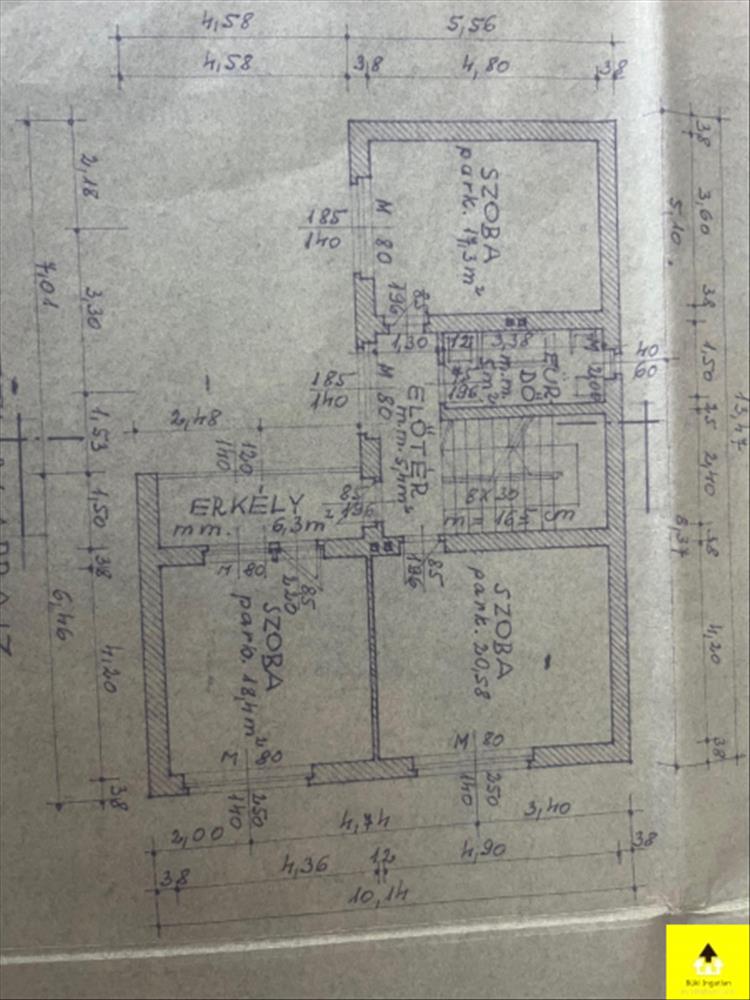 4,58
5,56
4,58
38
4,80
38
38
3,60
5,10
38
1,50
25
2,40
38
8,37
4,20
38
13,47
2,18
3,30
7,01
1,53
1,50
38
4,20
6,46
38
SZOBA
park. 17,3 m²
M 80
185
140
85
196
1,30
12
3,38
FÜR
DŐ
m.m.
5 m²
75
196
M 200
40
60
M 80
185
140
ELŐTÉR
m.m. 5,4 m²
2,48
120
140
ERKÉLY
mm. 6,3 m²
85
196
8 x 30
m = 16,5 cm
85
196
M 80
85
220
SZOBA
park. 18,4 m²
SZOBA
park. 20,58
M 80
250
140
M 80
250
140
2,00
4,74
3,40
38
4,36
12
4,90
38
10,14
Büki Ingatlan